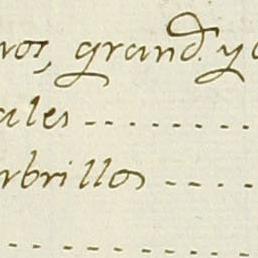 ros, grand.^s y
ales - - - - - - - -
rbrillos - - - -
- - - - - - - - - -